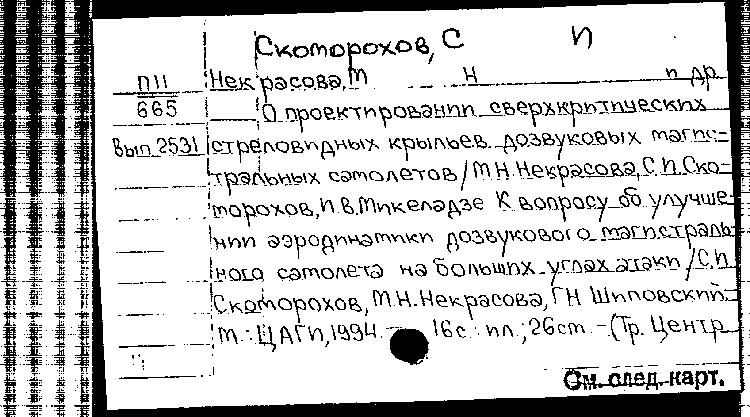 Скоморохов, С И
П 11 Некрасова, М Н и др
665 О проектировании сверхкритических
Вып 2531 стреловидных крыльев дозвуковых магис-
тральных самолетов / М Н. Некрасова, С. И. Ско-
морохов, И. В. Микеладзе К вопросу об улучше-
нии аэродинамики дозвукового магистраль-
ного самолета на больших углах атаки / С. И.
Скоморохов, М Н. Некрасова, Г Н Шиповский. -
М : ЦАГИ, 1994. - 16 с : ил ; 26 см. - (Тр. Центр
См. след. карт.